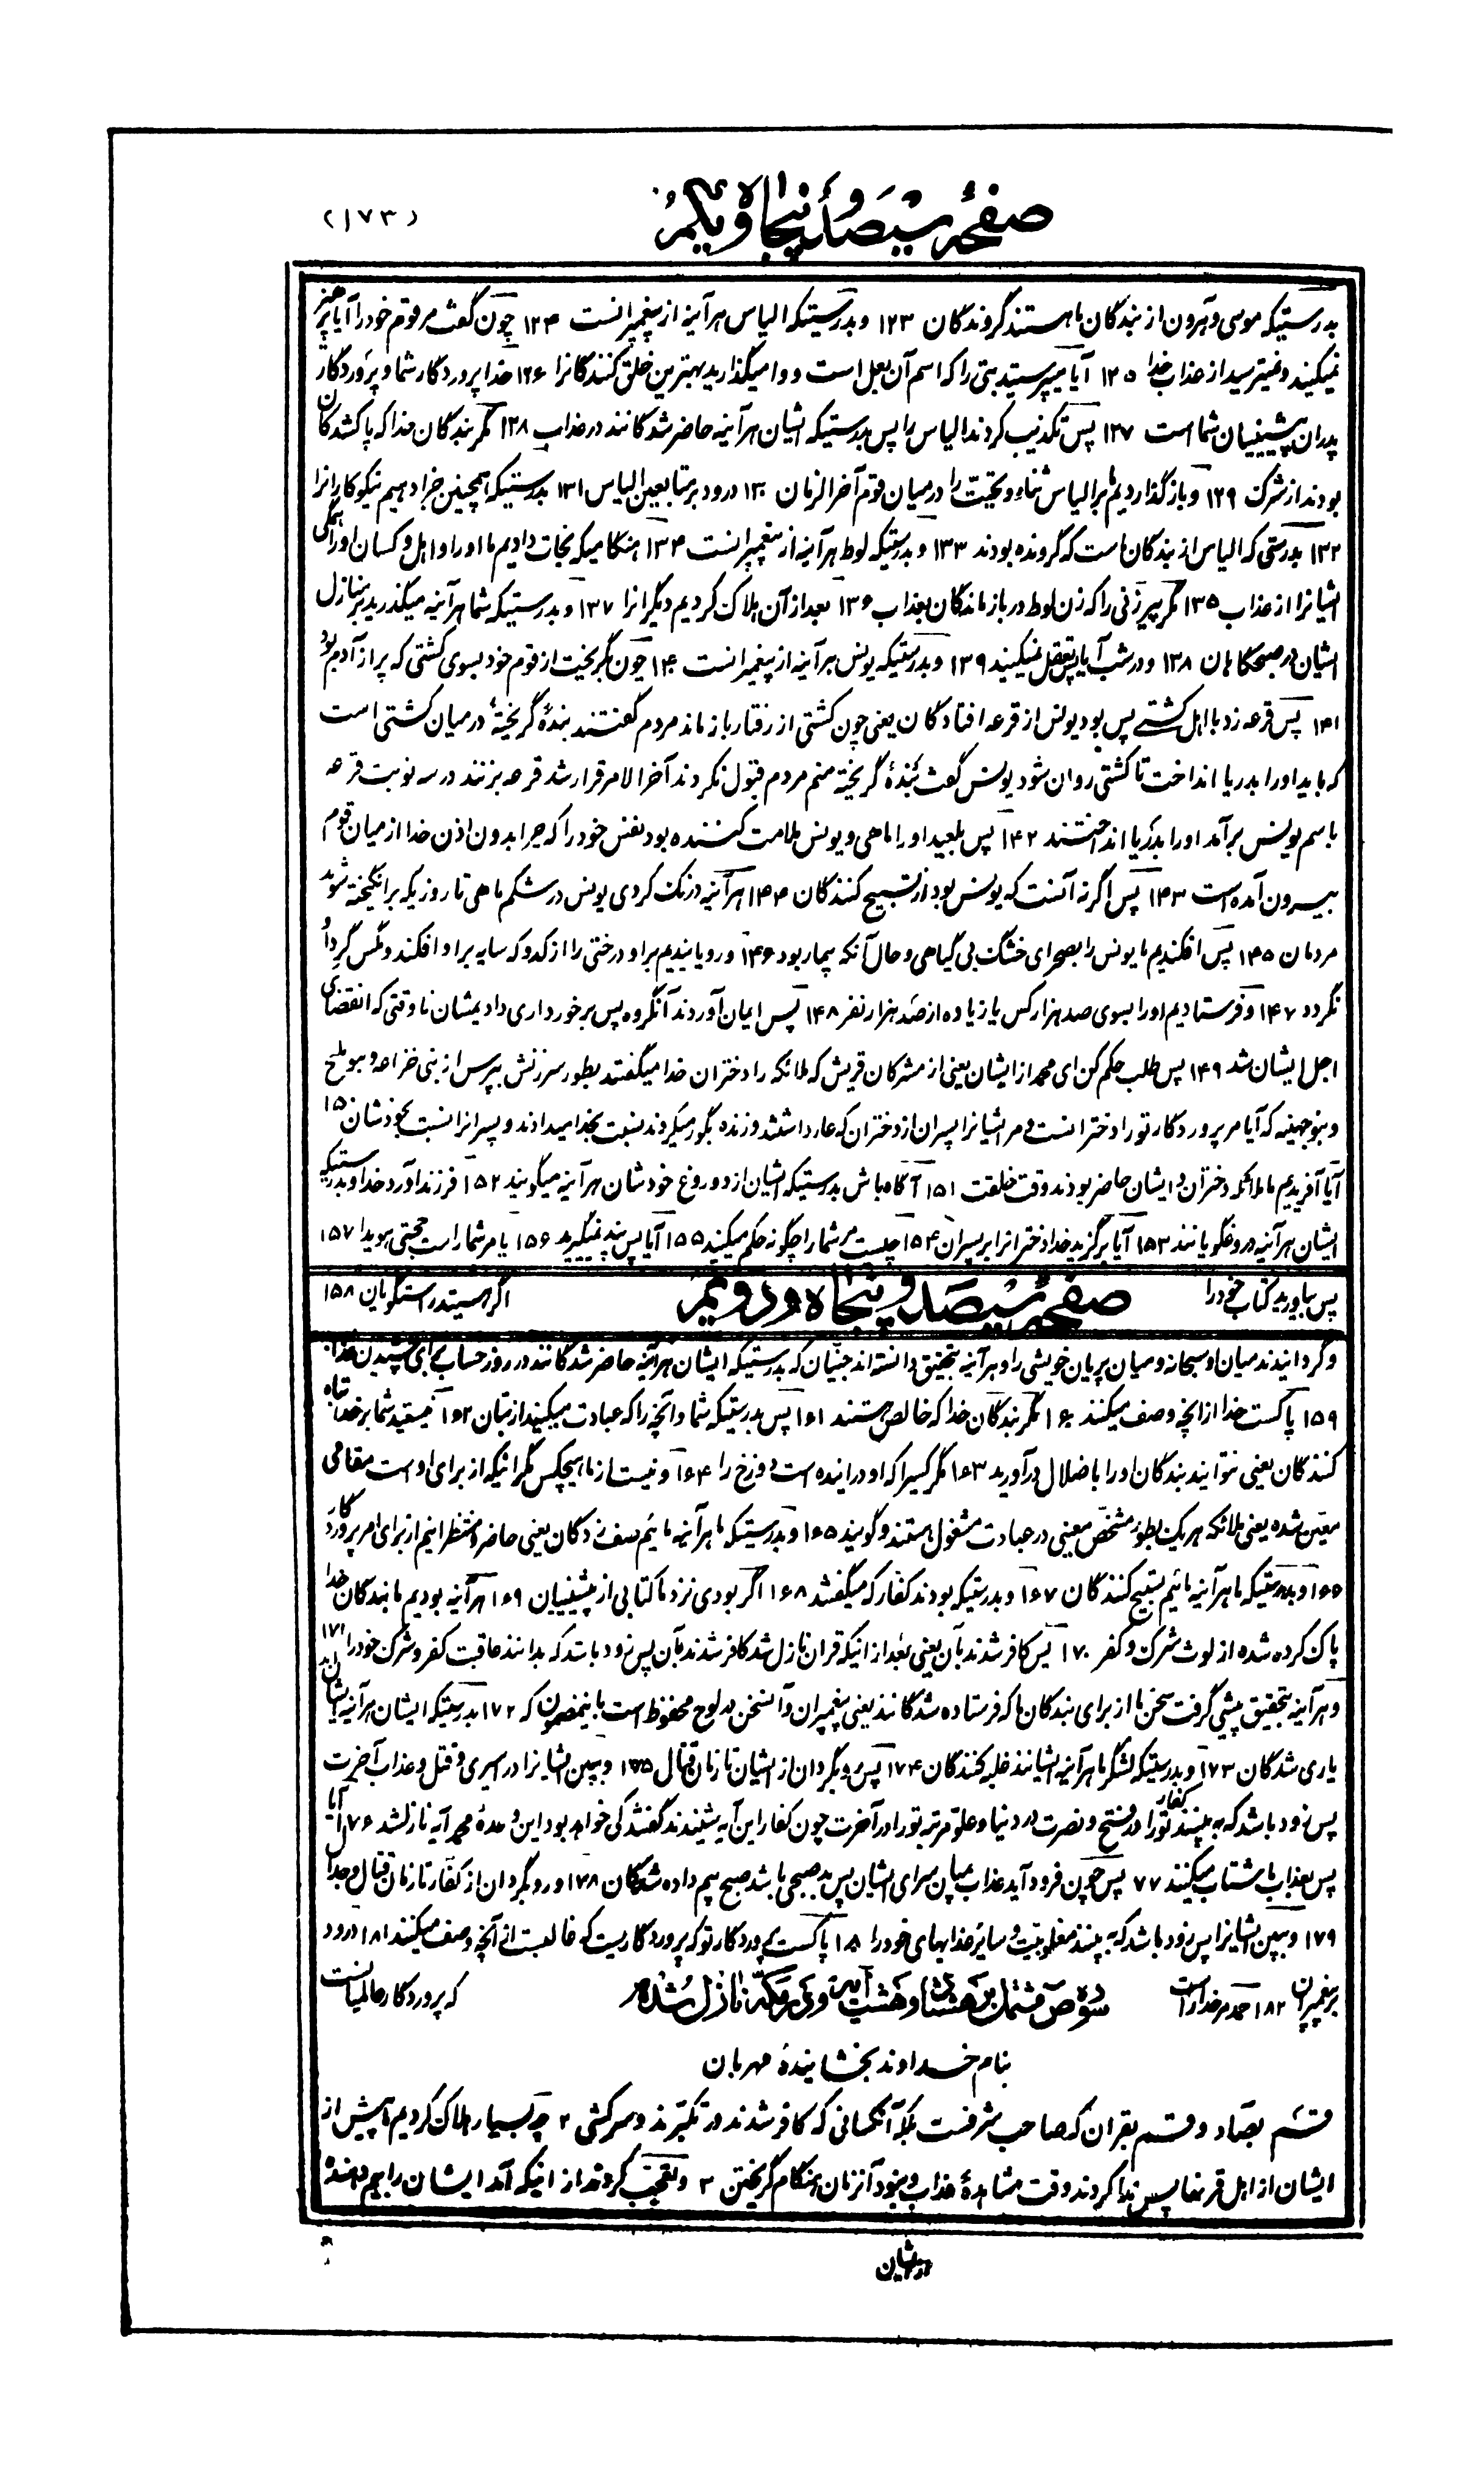 صفحهٔ سیصد و پنجاه و یکم
(۱۷۳)
بدرستیکه موسی و هرون از بندگان ما هستند گروندگان ۱۲۳ و بدرستیکه الیاس هر آینه از پیغمبرانست ۱۲۴ چون گفت مر قوم خود را آیا پرهیز
نمیکنید و نمیترسید از عذاب خدا ۱۲۵ آیا میپرستید بتی را که اسم آن بعل است و وا میگذارید بهترین خلق کنندگانرا ۱۲۶ خدا پروردگار شما و پروردگار
پدران پیشینیان شما است ۱۲۷ پس تکذیب کردند الیاس را پس بدرستیکه ایشان هر آینه حاضر شدگانند در عذاب ۱۲۸ مگر بندگان خدا که پاکشدگان
بودند از شرک ۱۲۹ و باز گذاردیم ما بر الیاس ثنا و تحیت را در میان قوم آخر الزمان ۱۳۰ درود بر متابعین الیاس ۱۳۱ بدرستیکه همچنین جزا دهیم نیکوکارانرا
۱۳۲ بدرستی که الیاس از بندگان ماست که گرونده بودند ۱۳۳ و بدرستیکه لوط هر آینه از پیغمبرانست ۱۳۴ هنگامیکه نجات دادیم ما او را و اهل و کسان او را همگی
ایشانرا از عذاب ۱۳۵ مگر پیر زنی را که زن لوط در باز ماندگان بعذاب ۱۳۶ بعد از آن هلاک کردیم دیگرانرا ۱۳۷ و بدرستیکه شما هر آینه میگذرید بر منازل
ایشان در صبحگاهان ۱۳۸ و در شب آیا پس تعقل نمیکنید ۱۳۹ و بدرستیکه یونس هر آینه از پیغمبرانست ۱۴۰ چون گریخت از قوم خود بسوی کشتی که پر از آدم بود
۱۴۱ پس قرعه زد با اهل کشتی پس بود یونس از قرعه افتادگان یعنی چون کشتی از رفتار باز ماند مردم گفتند بندهٔ گریختهٔ در میان کشتی است
که باید او را بدریا انداخت تا کشتی روان شود یونس گفت بندهٔ گریخته منم مردم قبول نکردند آخر الامر قرار شد قرعه بزنند در سه نوبت قرعه
باسم یونس بر آمد او را بدریا انداختند ۱۴۲ پس بلعید او را ماهی و یونس ملامت کننده بود نفس خود را که چرا بدون اذن خدا از میان قوم
بیرون آمده است ۱۴۳ پس اگر نه آنست که یونس بود از تسبیح کنندگان ۱۴۴ هر آینه درنگ کردی یونس در شکم ماهی تا روزیکه بر انگیخته شوند
مردمان ۱۴۵ پس افکندیم ما یونس را بصحرای خشک بی گیاهی و حال آنکه بیمار بود ۱۴۶ و رویانیدیم بر او درختی را از کدو که سایه بر او افکند و مگس گرد او
نگردد ۱۴۷ و فرستادیم او را بسوی صد هزار کس یا زیاده از صد هزار نفر ۱۴۸ پس ایمان آوردند آنگروه پس برخورداری دادیمشان تا وقتی که انقضای
اجل ایشان شد ۱۴۹ پس طلب حکم کن ای محمد از ایشان یعنی از مشرکان قریش که ملائکه را دختران خدا میگفتند بطور سرزنش بپرس از بنی خزاعه و بنو ملیح
و بنو جهینه که آیا مر پروردگار تو را دخترانست و مر ایشانرا پسران از دختران که عار داشتند و زنده بگور میکردند نسبت بخدا میدادند و پسرانرا نسبت بخودشان ۱۵۰
آیا آفریدیم ما ملائکه دختران و ایشان حاضر بودند وقت خلقت ۱۵۱ آگاه باش بدرستیکه ایشان از دروغ خودشان هر آینه میگویند ۱۵۲ فرزند آورد خدا و بدرستیکه
ایشان هر آینه دروغگویانند ۱۵۳ آیا برگزید خدا دخترانرا بر پسران ۱۵۴ چیست مر شما را چگونه حکم میکنید ۱۵۵ آیا پس پند نمیگیرید ۱۵۶ یا مر شما راست حجتی هویدا ۱۵۷
پس بیاورید کتاب خود را
صفحهٔ سیصد و پنجاه و دویم
اگر هستید راستگویان ۱۵۸
و گردانیدند میان او سبحانه و میان پریان خویشی را و هر آینه بتحقیق دانسته اند جنیان که بدرستیکه ایشان هر آینه حاضر شدگانند در روز حساب برای چشیدن عذاب
۱۵۹ پاکست خدا از آنچه وصف میکنند ۱۶۰ مگر بندگان خدا که خالص هستند ۱۶۱ پس بدرستیکه شما و آنچه را که عبادت میکنید از بتان ۱۶۲ نیستید شما بر خدا تباه
کنندگان یعنی نتوانید بندگان او را باضلال در آورید ۱۶۳ مگر کسیرا که او در آینده است دوزخ را ۱۶۴ و نیست از ما هیچکس مگر اینکه از برای اوست مقامی
معین شده یعنی ملائکه هر یک بطور مشخص معینی در عبادت مشغول هستند و گویند ۱۶۵ و بدرستیکه ما هر آینه مائیم صف زدگان یعنی حاضر و منتظرانیم از برای امر پروردگار
۱۶۶ و بدرستیکه ما هر آینه مائیم تسبیح کنندگان ۱۶۷ و بدرستیکه بودند کفار که میگفتند ۱۶۸ اگر بودی نزد ما کتابی از پیشینیان ۱۶۹ هر آینه بودیم ما بندگان خدا
پاک کرده شده از لوث شرک و کفر ۱۷۰ پس کافر شدند بآن یعنی بعد از اینکه قران نازل شد کافر شدند بآن پس زود باشد که بدانند عاقبت کفر و شرک خود را ۱۷۱
و هر آینه بتحقیق پیشی گرفت سخن ما از برای بندگان ما که فرستاده شدگانند یعنی پیغمبران و آنسخن در لوح محفوظ است باینمضمون که ۱۷۲ بدرستیکه ایشان هر آینه ایشانند
یاری شدگان ۱۷۳ و بدرستیکه لشگر ما هر آینه ایشانند غلبه کنندگان ۱۷۴ پس رو بگردان از ایشان تا زمان قتال ۱۷۵ و ببین ایشانرا در اسیری و قتل و عذاب آخرت
پس زود باشد که به بینند کفار تو را در فتح و نصرت در دنیا و علو مرتبه تو را در آخرت چون کفار این آیه شنیدند گفتند کی خواهد بود این وعدهٔ محمد آیه نازلشد ۱۷۶ آیا
پس بعذاب ما شتاب میکنند ۷۷ پس چون فرود آید عذاب بمیان سرای ایشان پس بد صبحی باشد صبح بیم داده شدگان ۱۷۸ و رو بگردان از کفار تا زمان قتال و جدال
۱۷۹ و ببین ایشانرا پس زود باشد که به بینند مغلوبیت و سایر عذابهای خود را ۱۸۰ پاکست پروردگار تو که پروردگاریست که غالبست از آنچه وصف میکنند ۱۸۱ درود
بر پیغمبران ۱۸۲ حمد مر خدا راست
سورهٔ ص مشتمل بر هشتاد و هشت آیه و در مکه نازل شده
که پروردگار عالمیانست
بنام خداوند بخشایندهٔ مهربان
قسم بصاد و قسم بقران که صاحب شرفست بلکه آنکسانی که کافر شدند در تکبرند و سرکشی ۲ چه بسیار هلاک کردیم ما پیش از
ایشان از اهل قرنها پس ندا کردند وقت مشاهدهٔ عذاب و نبود آنزمان هنگام گریختن ۳ و تعجب کردند از اینکه آمد ایشان را بیم دهندهٔ
از ایشان